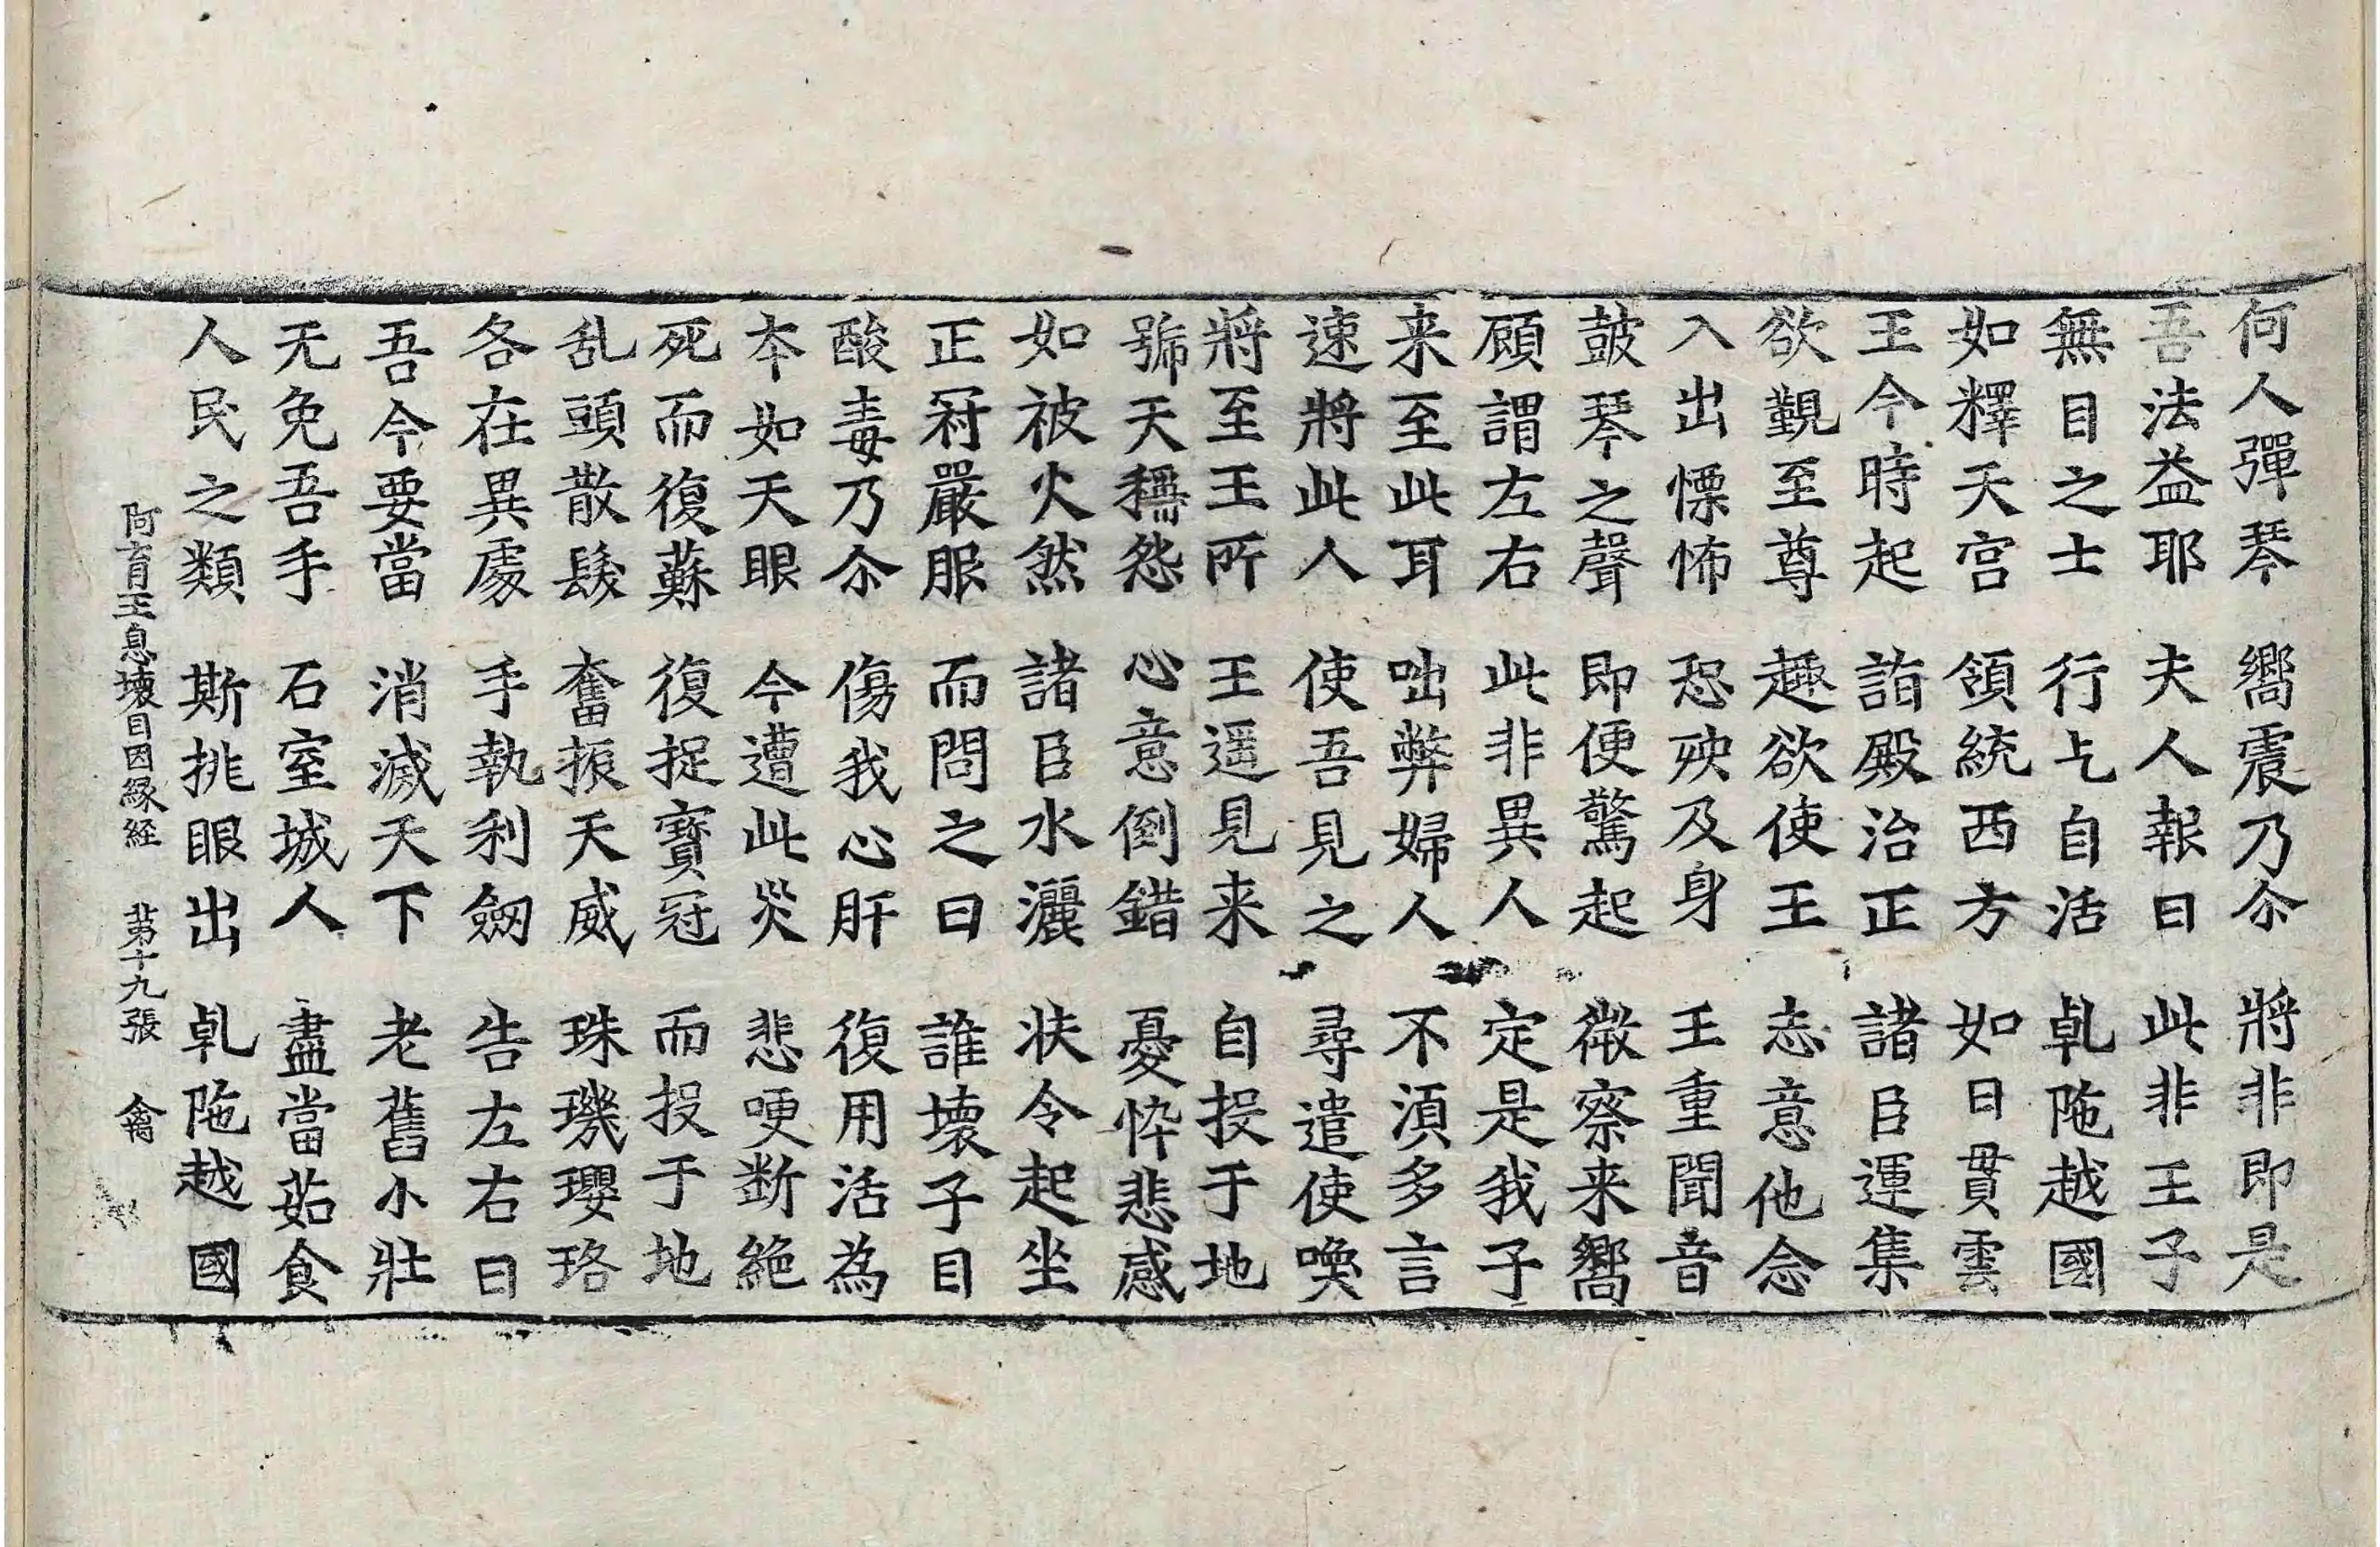 何人彈琴 嚮震乃尒 將非即是
吾法益耶 夫人報曰 此非王子
無目之士 行乞自活 乹陁越國
如釋天宫 領統西方 如日貫雲
王今時起 詣殿治正 諸臣運集
欲觐至尊 趣欲使王 志意他念
入出慄怖 恐殃及身 王重聞音
鼓琴之聲 即便驚起 微察来嚮
頋謂左右 此非異人 定是我子
来至此耳 咄弊婦人 不湏多言
速將此人 使吾見之 尋遣使喚
將至王所 王遥見来 自投于地
號天稱怨 心意倒錯 憂悴悲感
如被火然 諸臣水灑 扶令起坐
正冠嚴服 而問之曰 誰壞子目
酸毒乃尒 傷我心肝 復用活為
本如天眼 今遭此災 悲哽断絶
死而復蘇 復捉寳冠 而投于地
乱頭散髮 奮振天威 珠璣瓔珞
各在異處 手執利劒 告左右曰
吾今要當 消滅天下 老舊小壯
无免吾手 石室城人 盡當茹食
人民之類 斯挑眼出 乹陁越國
阿育王息壞目因緣経 苐十九張 禽